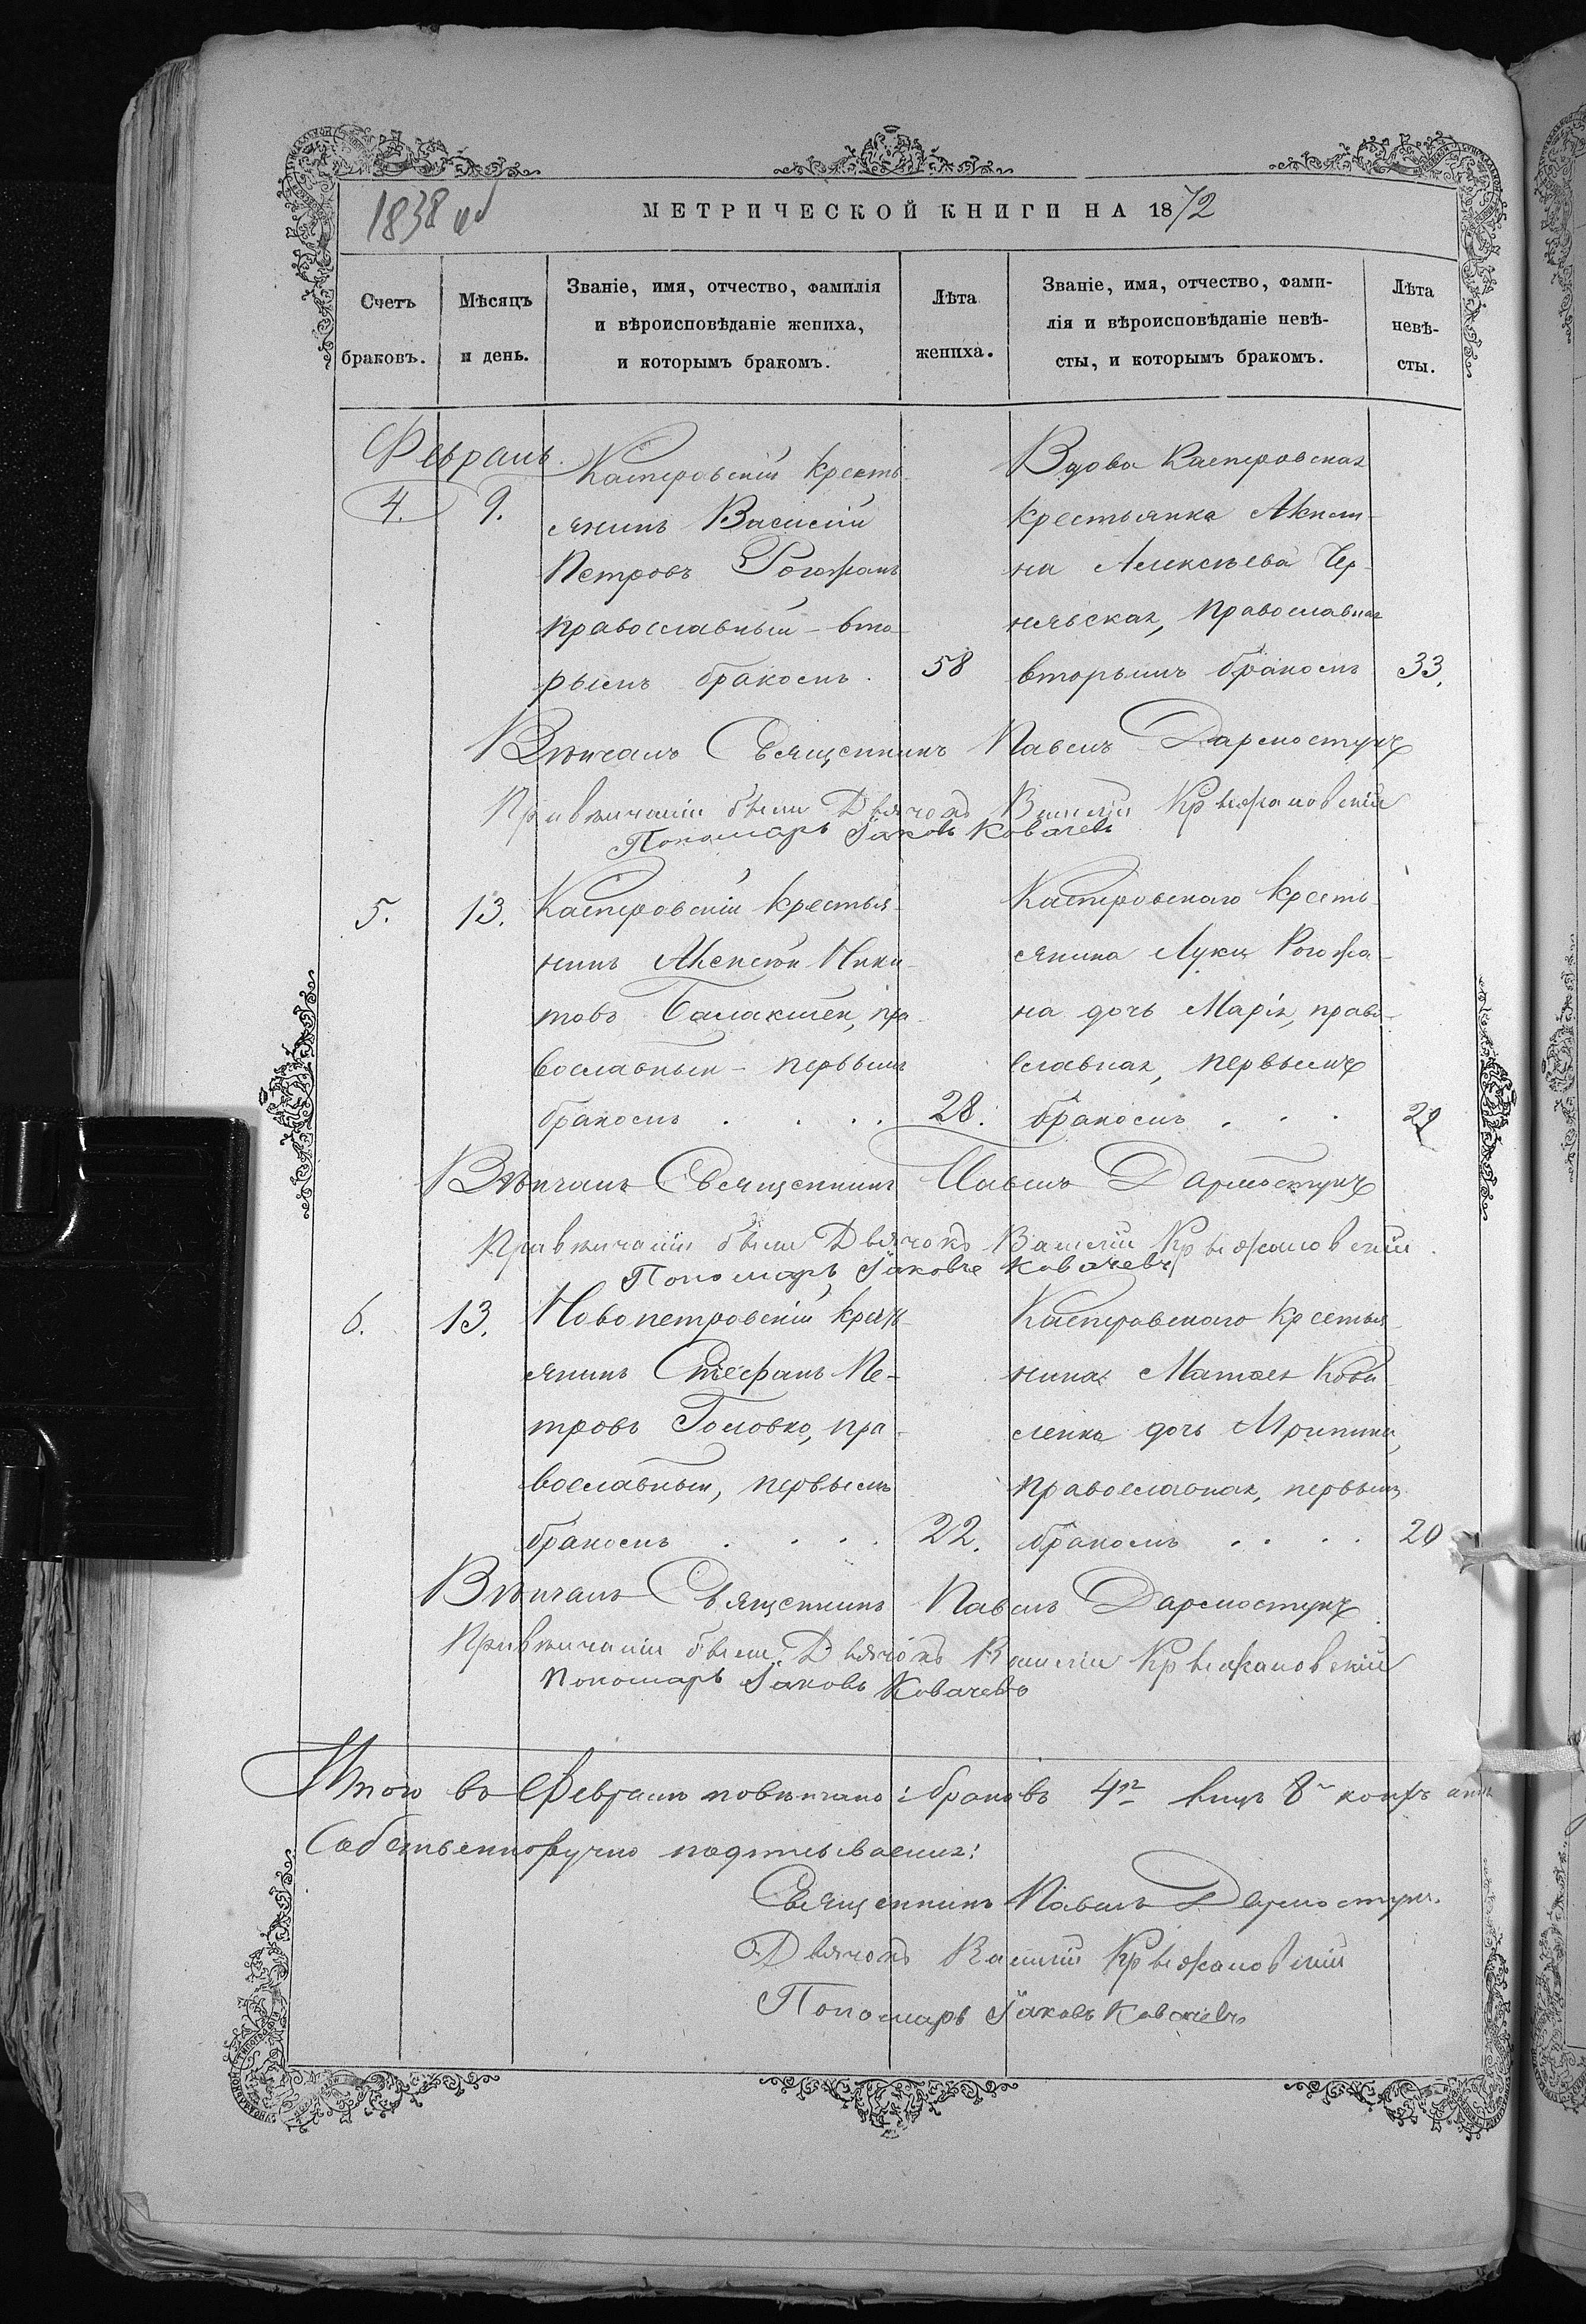 1838 об
МЕТРИЧЕСКОЙ КНИГИ НА 1872
Счетъ браковъ.
Мѣсяцъ и день.
Званіе, имя, отчество, фамилія
и вѣроисповѣданіе жениха,
и которымъ бракомъ.
Лѣта жениха.
Званіе, имя, отчество, фами-
лія и вѣроисповѣданіе невѣ-
сты, и которымъ бракомъ.
Лѣта невѣ-
сты.
Февраль
4. 9.
Касперовскій кресть-
янинъ Василій
Петровъ Рогожанъ
православный - вто-
рымъ бракомъ. 58
Вдова Касперовская
крестьянка Акили-
на Алексѣева Чер-
нявская, православная
вторымъ бракомъ 33.
Вѣнчалъ Священникъ Павелъ Дармостукъ
При вѣнчаніи были Дьячокъ Василій Крыжановскій
Пономарь Іаковъ Ковачевъ
5. 13.
Касперовскій крестья-
нинъ Алексѣй Ники-
товъ Балакшей, пра-
вославный - первымъ
бракомъ . . . . 28.
Касперовского кресть-
янина Луки Рогожа-
на дочь Марія, право-
славная, первымъ
бракомъ . . .
Вѣнчалъ Священникъ Павелъ Дармостукъ
При вѣнчаніи были Дьячокъ Василій Крыжановскій.
Пономарь Іаковъ Ковачевъ
6. 13.
Новопетровскій крест-
янинъ Стефанъ Пе-
тровъ Головко, пра-
вославный, первымъ
бракомъ . . . . 22.
Касперовского крестья-
нина Матвея
дочь
православная, первымъ
бракомъ . . . . 20
Вѣнчалъ Священникъ Павелъ Дармостукъ
При вѣнчаніи были: Дьячокъ Василій Крыжановскій
Пономарь Іаковъ Ковачевъ
Итого въ Февралѣ повѣнчано: браковъ 4ре лицъ 8 коихъ
Собственноручно подписываемъ:
Священникъ Павелъ Дармостукъ.
Дьячокъ Василій Крыжановскій
Пономарь Іаковъ Ковачевъ